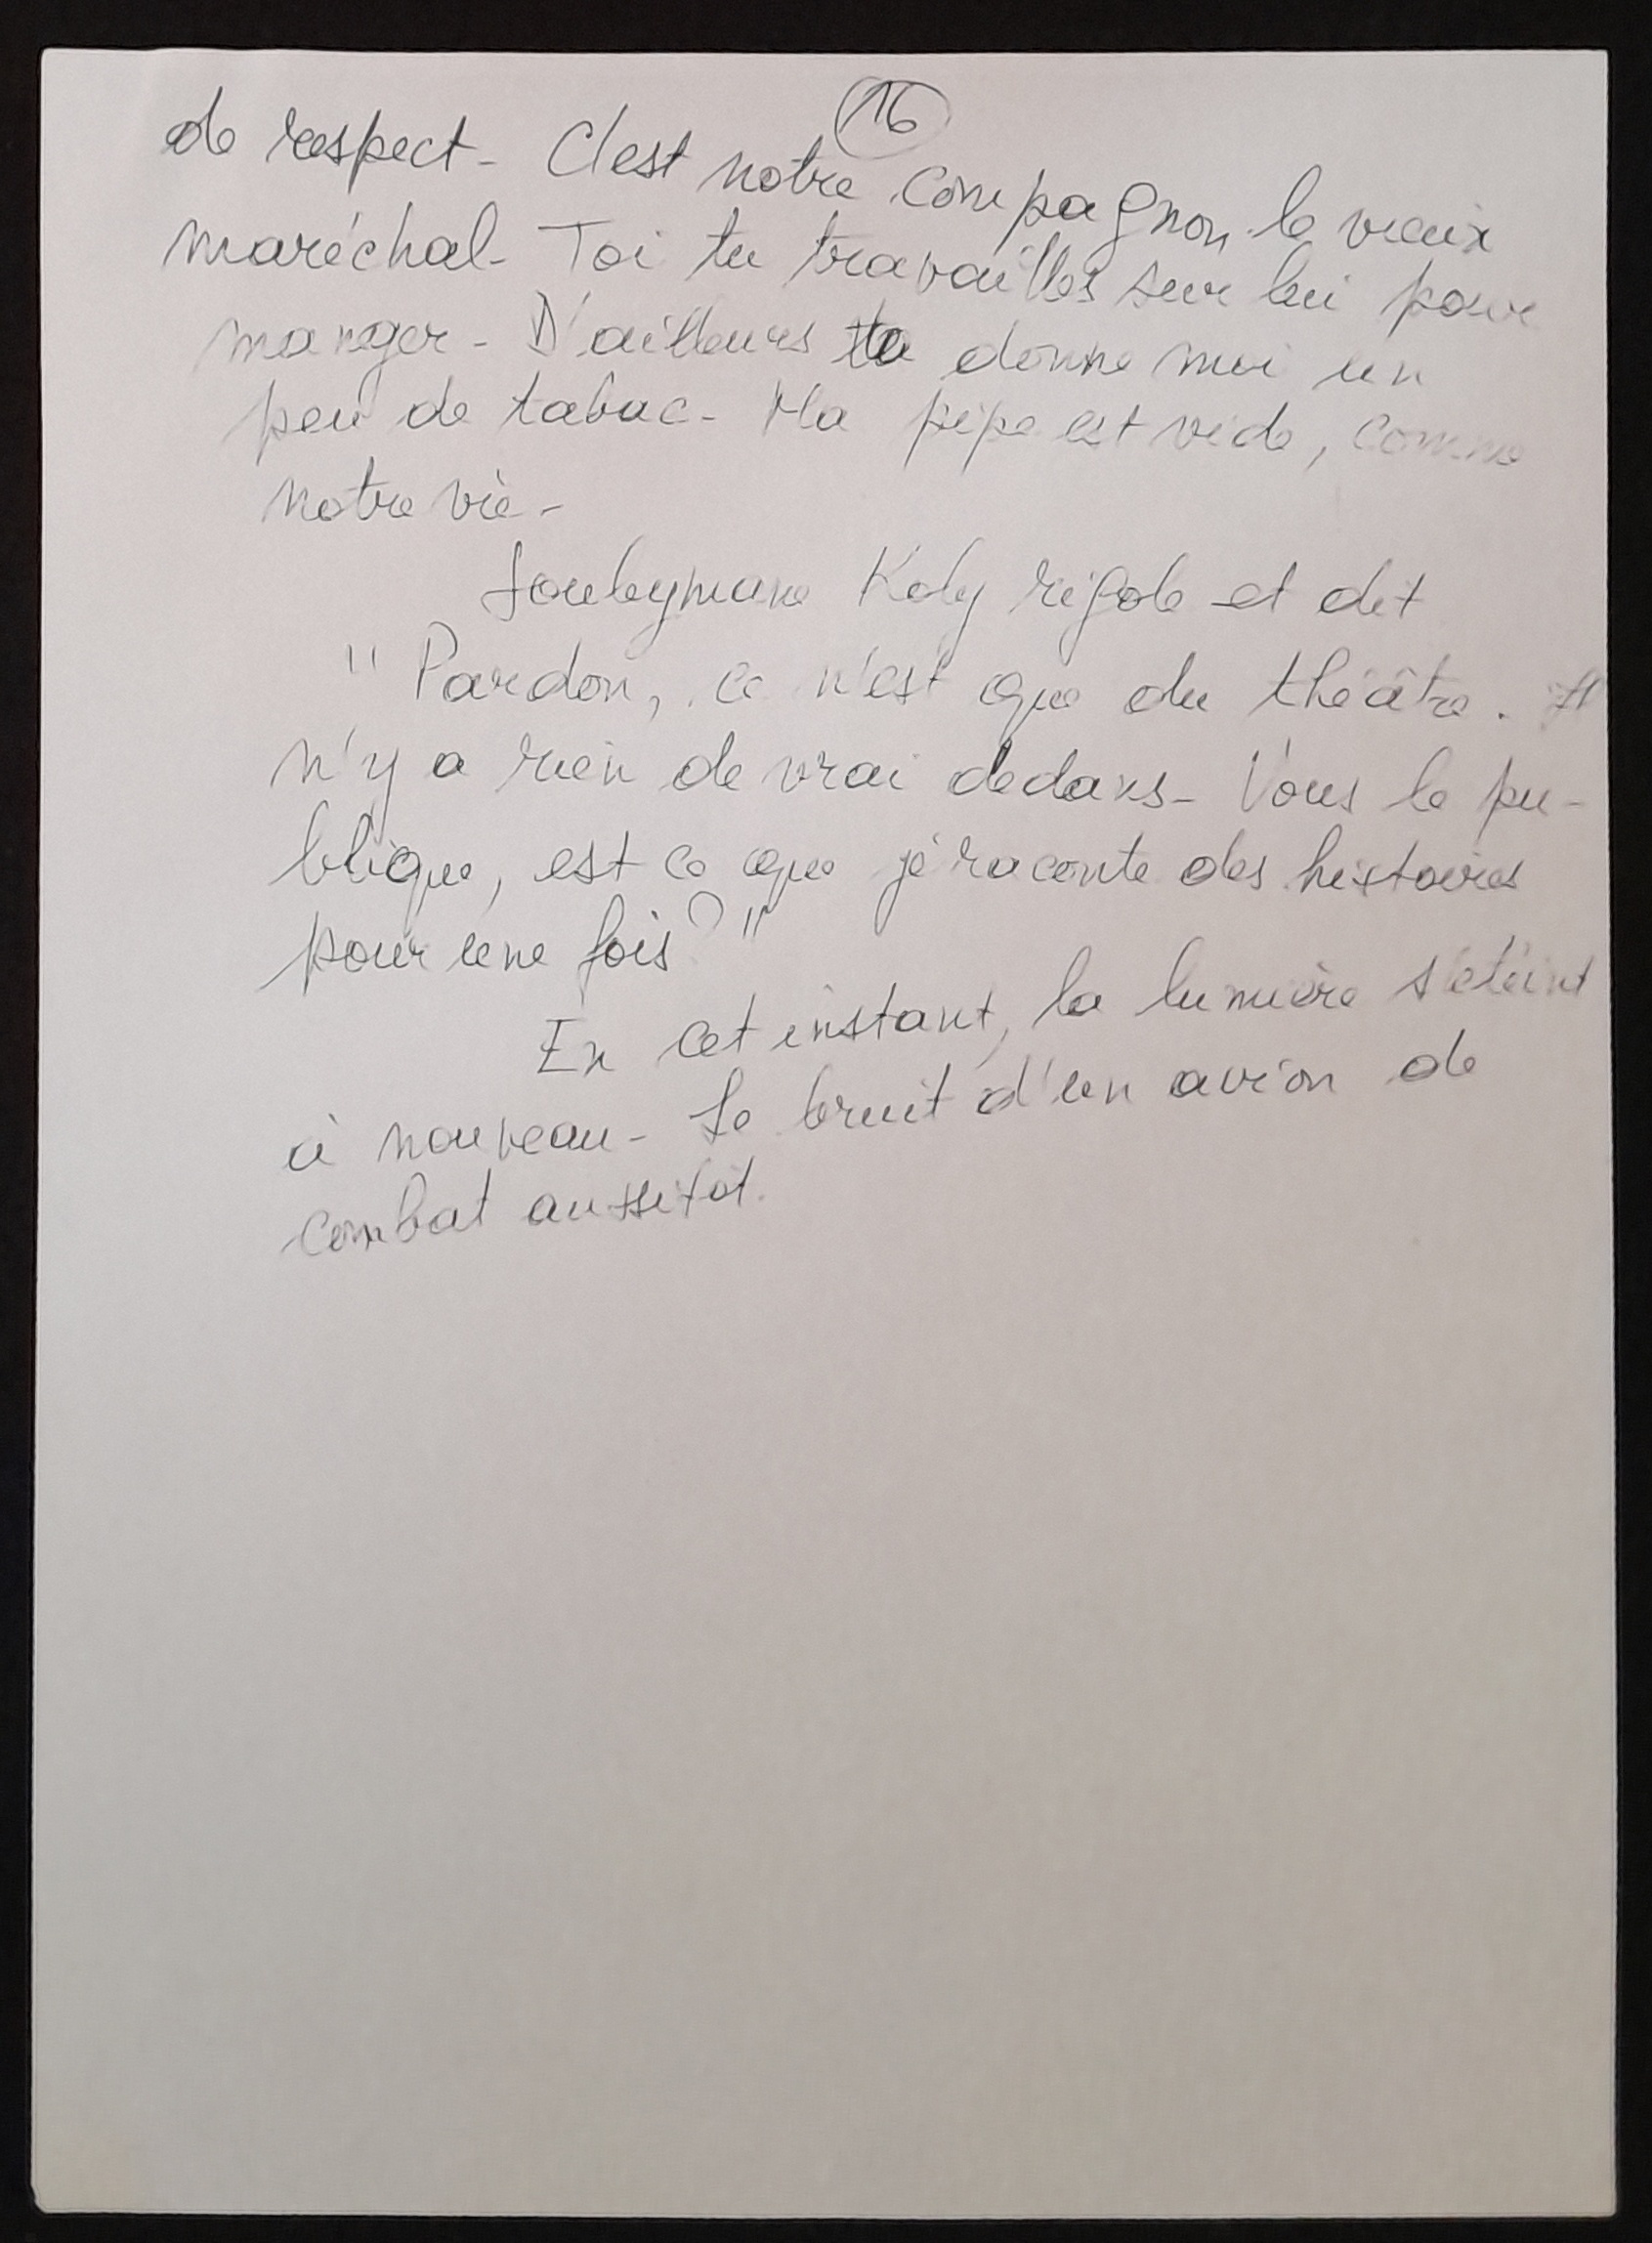 16
de respect - C'est notre compagnon le vieux
maréchal - Toi tu travailles sur lui pour
manger - D'ailleurs donne moi un
peu de tabac - Ma pipe est vide, comme
notre vie -
Souleymane Koly rigole et dit
" Pardon, ce n'est que du théâtre. Il
n'y a rien de vrai dedans - Vous le pu-
blique, est ce que je raconte des histoires
pour une fois ? "
En cet instant, la lumière s'éteint
à nouveau - Le bruit d'un avion de
combat aussitôt.